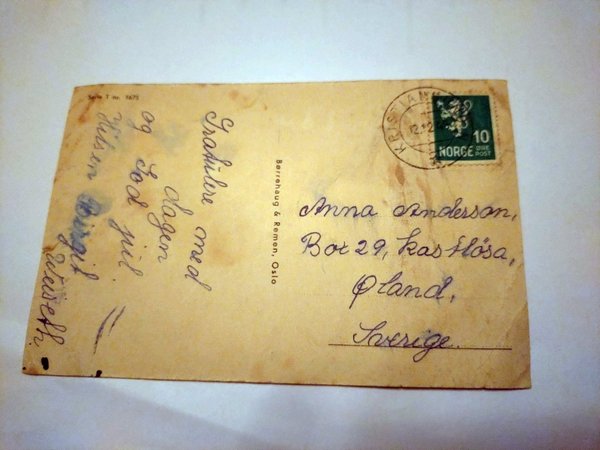 Serie T nr. 1675
Gratulere med
dagen
og God jul.
Hilsen Birgit
Weiseth.
Børrehaug & Remen, Oslo
KRISTIAN
12.12
10
NORGE
ØRE
POST
Anna Anderson,
Box 29, Kastlösa,
Øland,
Sverige.